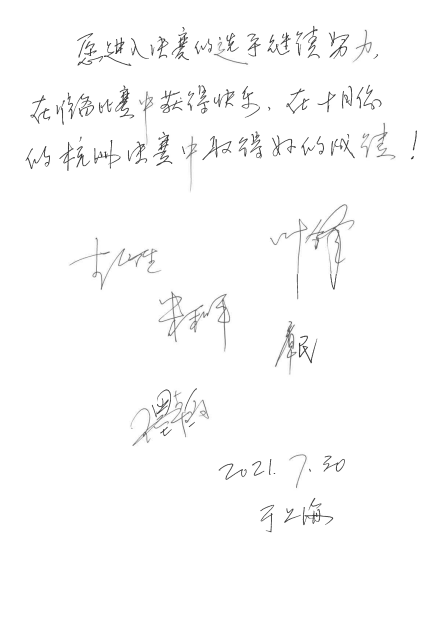 愿进入决赛的选手继续努力,
在准备比赛中获得快乐、在十月份
的杭州决赛中取得好的成绩!
叶锋
2021.7.30
于上海